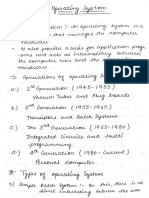 Operating System
System :- An operating system is a
that manages the computer
hardware.
It also provides a basis for application progr
ams and acts as intermediary between
the computer user and the computer
hardware
=> Generations of operating System
a) 1st Generation (1945-1955)
Vacuum Tubes and Plug Boards
b) 2nd Generation (1955-1965)
Transistors and Batch Systems
c) The 3rd Generation (1965-1980)
Integrated Circuits and multi-
programming
d) 4th Generation (1980-Current)
Personal computer
Types of operating System
1) Simple Batch System :- In this, there is no
direct interaction between the